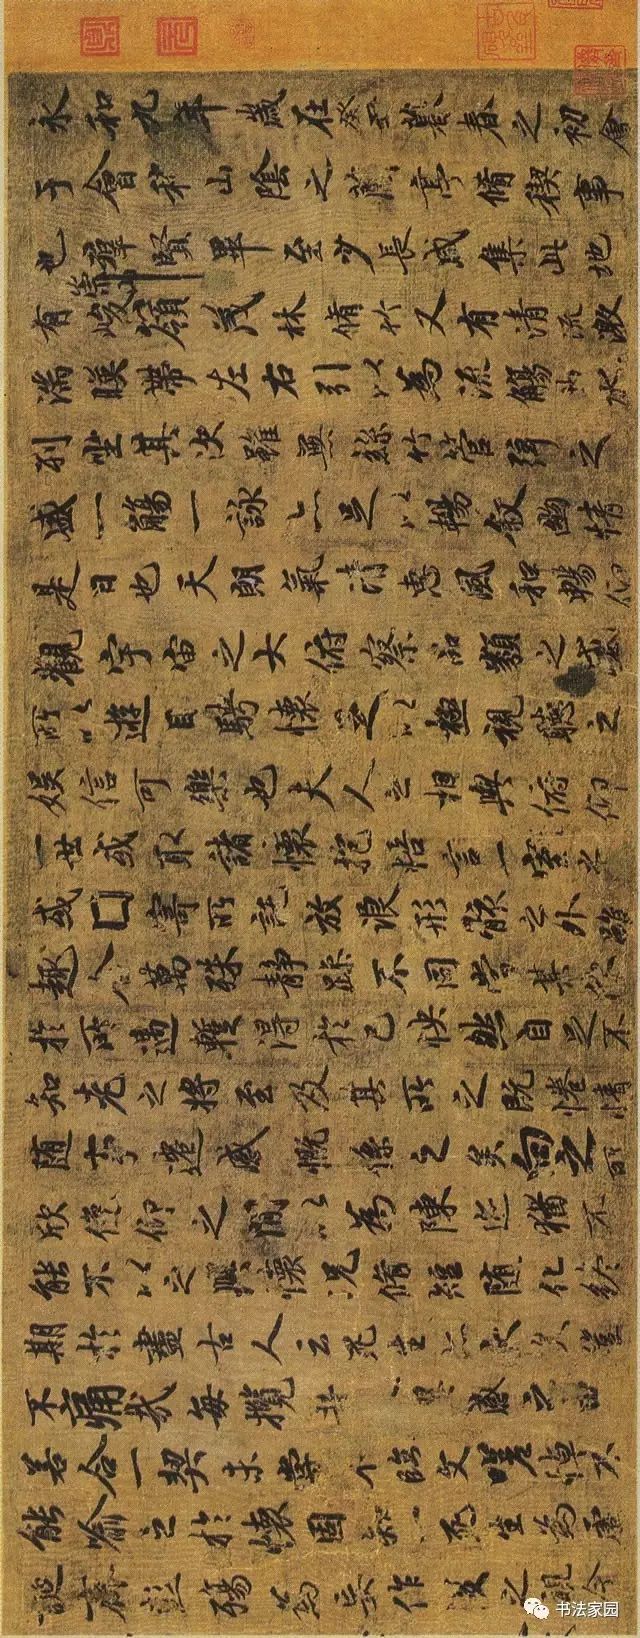 永和九年歲在癸丑暮春之初會
于會稽山陰之蘭亭脩稧事
也羣賢畢至少長咸集此地
有崇山峻嶺茂林脩竹又有清流激
湍暎帶左右引以為流觴曲水
列坐其次雖無絲竹管弦之
盛一觴一詠亦足以暢敘幽情
是日也天朗氣清惠風和暢仰
觀宇宙之大俯察品類之盛
所以遊目騁懷足以極視聽之
娛信可樂也夫人之相與俯仰
一世或取諸懷抱悟言一室之內
或因寄所託放浪形骸之外雖
趣舍萬殊靜躁不同當其欣
於所遇暫得於己怏然自足不
知老之將至及其所之既惓情
隨事遷感慨係之矣向之所
欣俛仰之間以為陳迹猶不
能不以之興懷況脩短隨化終
期於盡古人云死生亦大矣豈
不痛哉每攬昔興感之由
若合一契未嘗不臨文嗟悼不
能喻之於懷固知死生為虛
誕齊彭殤為妄作後之視今
书法家园